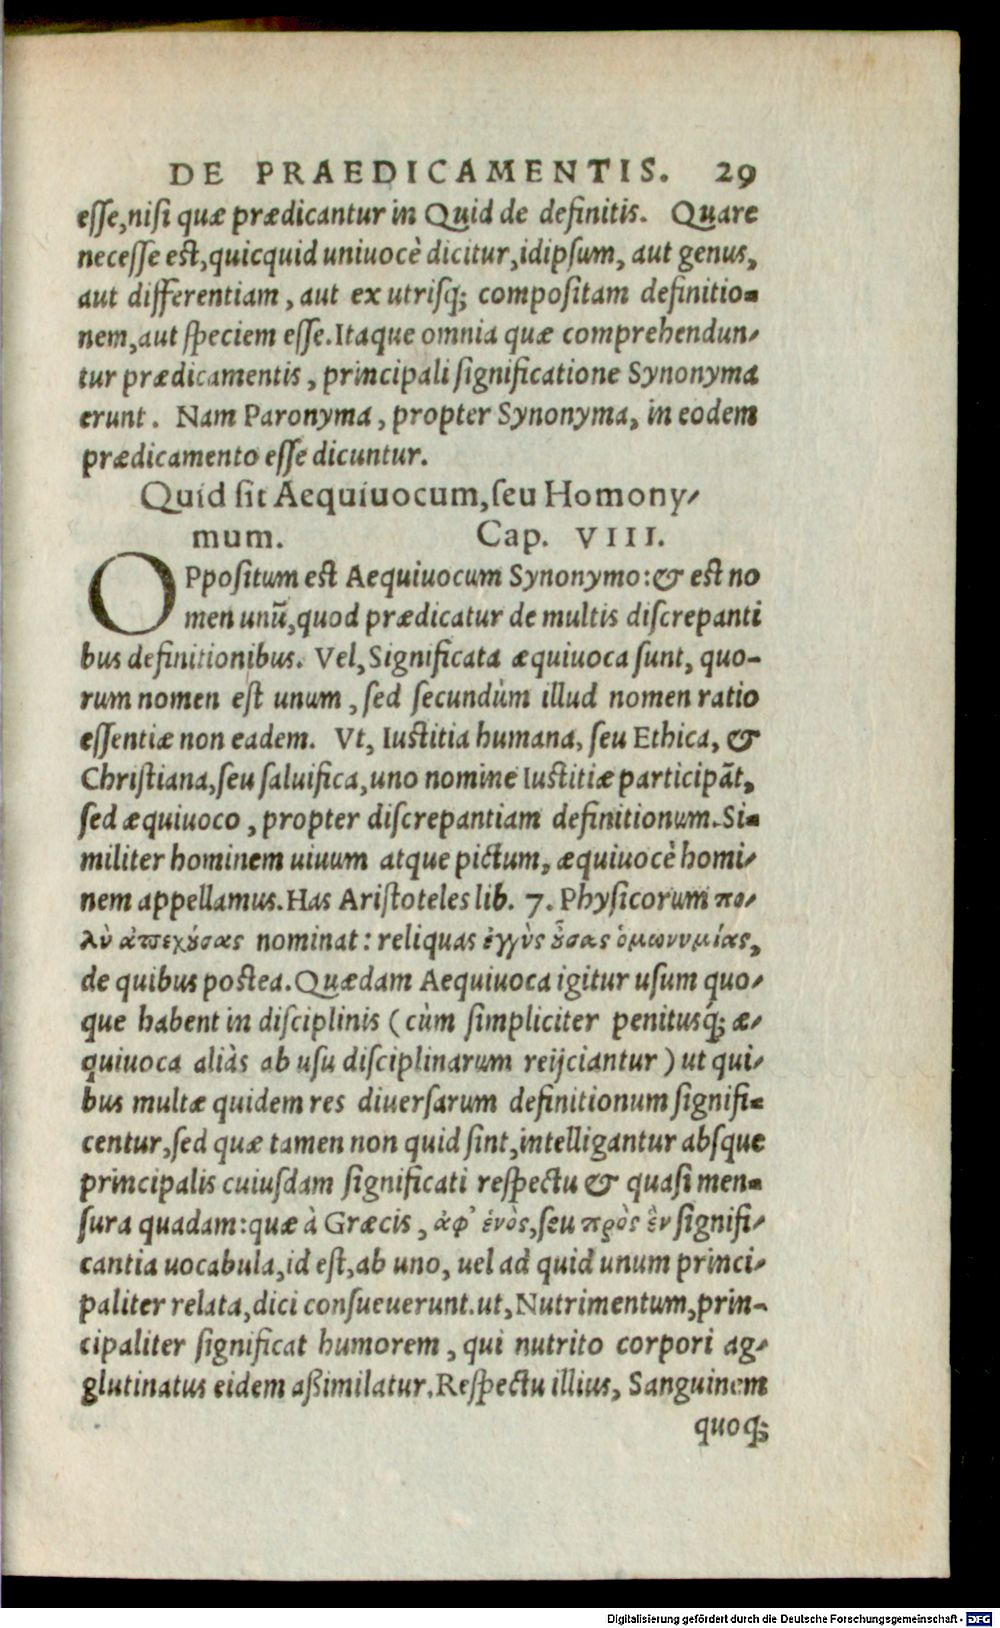 DE PRAEDICAMENTIS. 29
esse,nisi quæ prædicantur in Quid de definitis. Quare
necesse est,quicquid uniuocè dicitur,idipsum, aut genus,
aut differentiam, aut ex utrisq; compositam definitio-
nem,aut speciem esse.Itaque omnia quæ comprehendun-
tur prædicamentis, principali significatione Synonyma
erunt. Nam Paronyma, propter Synonyma, in eodem
prædicamento esse dicuntur.
Quid sit Aequiuocum,seu Homony-
mum. Cap. VIII.
OPpositum est Aequiuocum Synonymo:& est no
men unũ,quod prædicatur de multis discrepanti
bus definitionibus. Vel,Significata æquiuoca sunt, quo-
rum nomen est unum, sed secundùm illud nomen ratio
essentiæ non eadem. Vt, Iustitia humana, seu Ethica, &
Christiana,seu saluifica,uno nomine Iustitiæ participãt,
sed æquiuoco, propter discrepantiam definitionum.Si-
militer hominem uiuum atque pictum, æquiuocè homi-
nem appellamus.Has Aristoteles lib. 7. Physicorum πο-
λὺ ἀπεχούσας nominat: reliquas ἐγγὺς οὔσας ὁμωνυμίας,
de quibus postea.Quædam Aequiuoca igitur usum quo-
que habent in disciplinis (cùm simpliciter penitusq́; æ-
quiuoca aliàs ab usu disciplinarum reijciantur) ut qui-
bus multæ quidem res diuersarum definitionum signifi-
centur,sed quæ tamen non quid sint,intelligantur absque
principalis cuiusdam significati respectu & quasi men-
sura quadam:quæ à Græcis, ἀφ' ἑνὸς,seu πρὸς ἓν signifi-
cantia uocabula,id est,ab uno, uel ad quid unum princi-
paliter relata,dici consueuerunt.ut,Nutrimentum,prin-
cipaliter significat humorem, qui nutrito corpori ag-
glutinatus eidem aßimilatur.Respectu illius, Sanguinem
quoq;
Digitalisierung gefördert durch die Deutsche Forschungsgemeinschaft - DFG